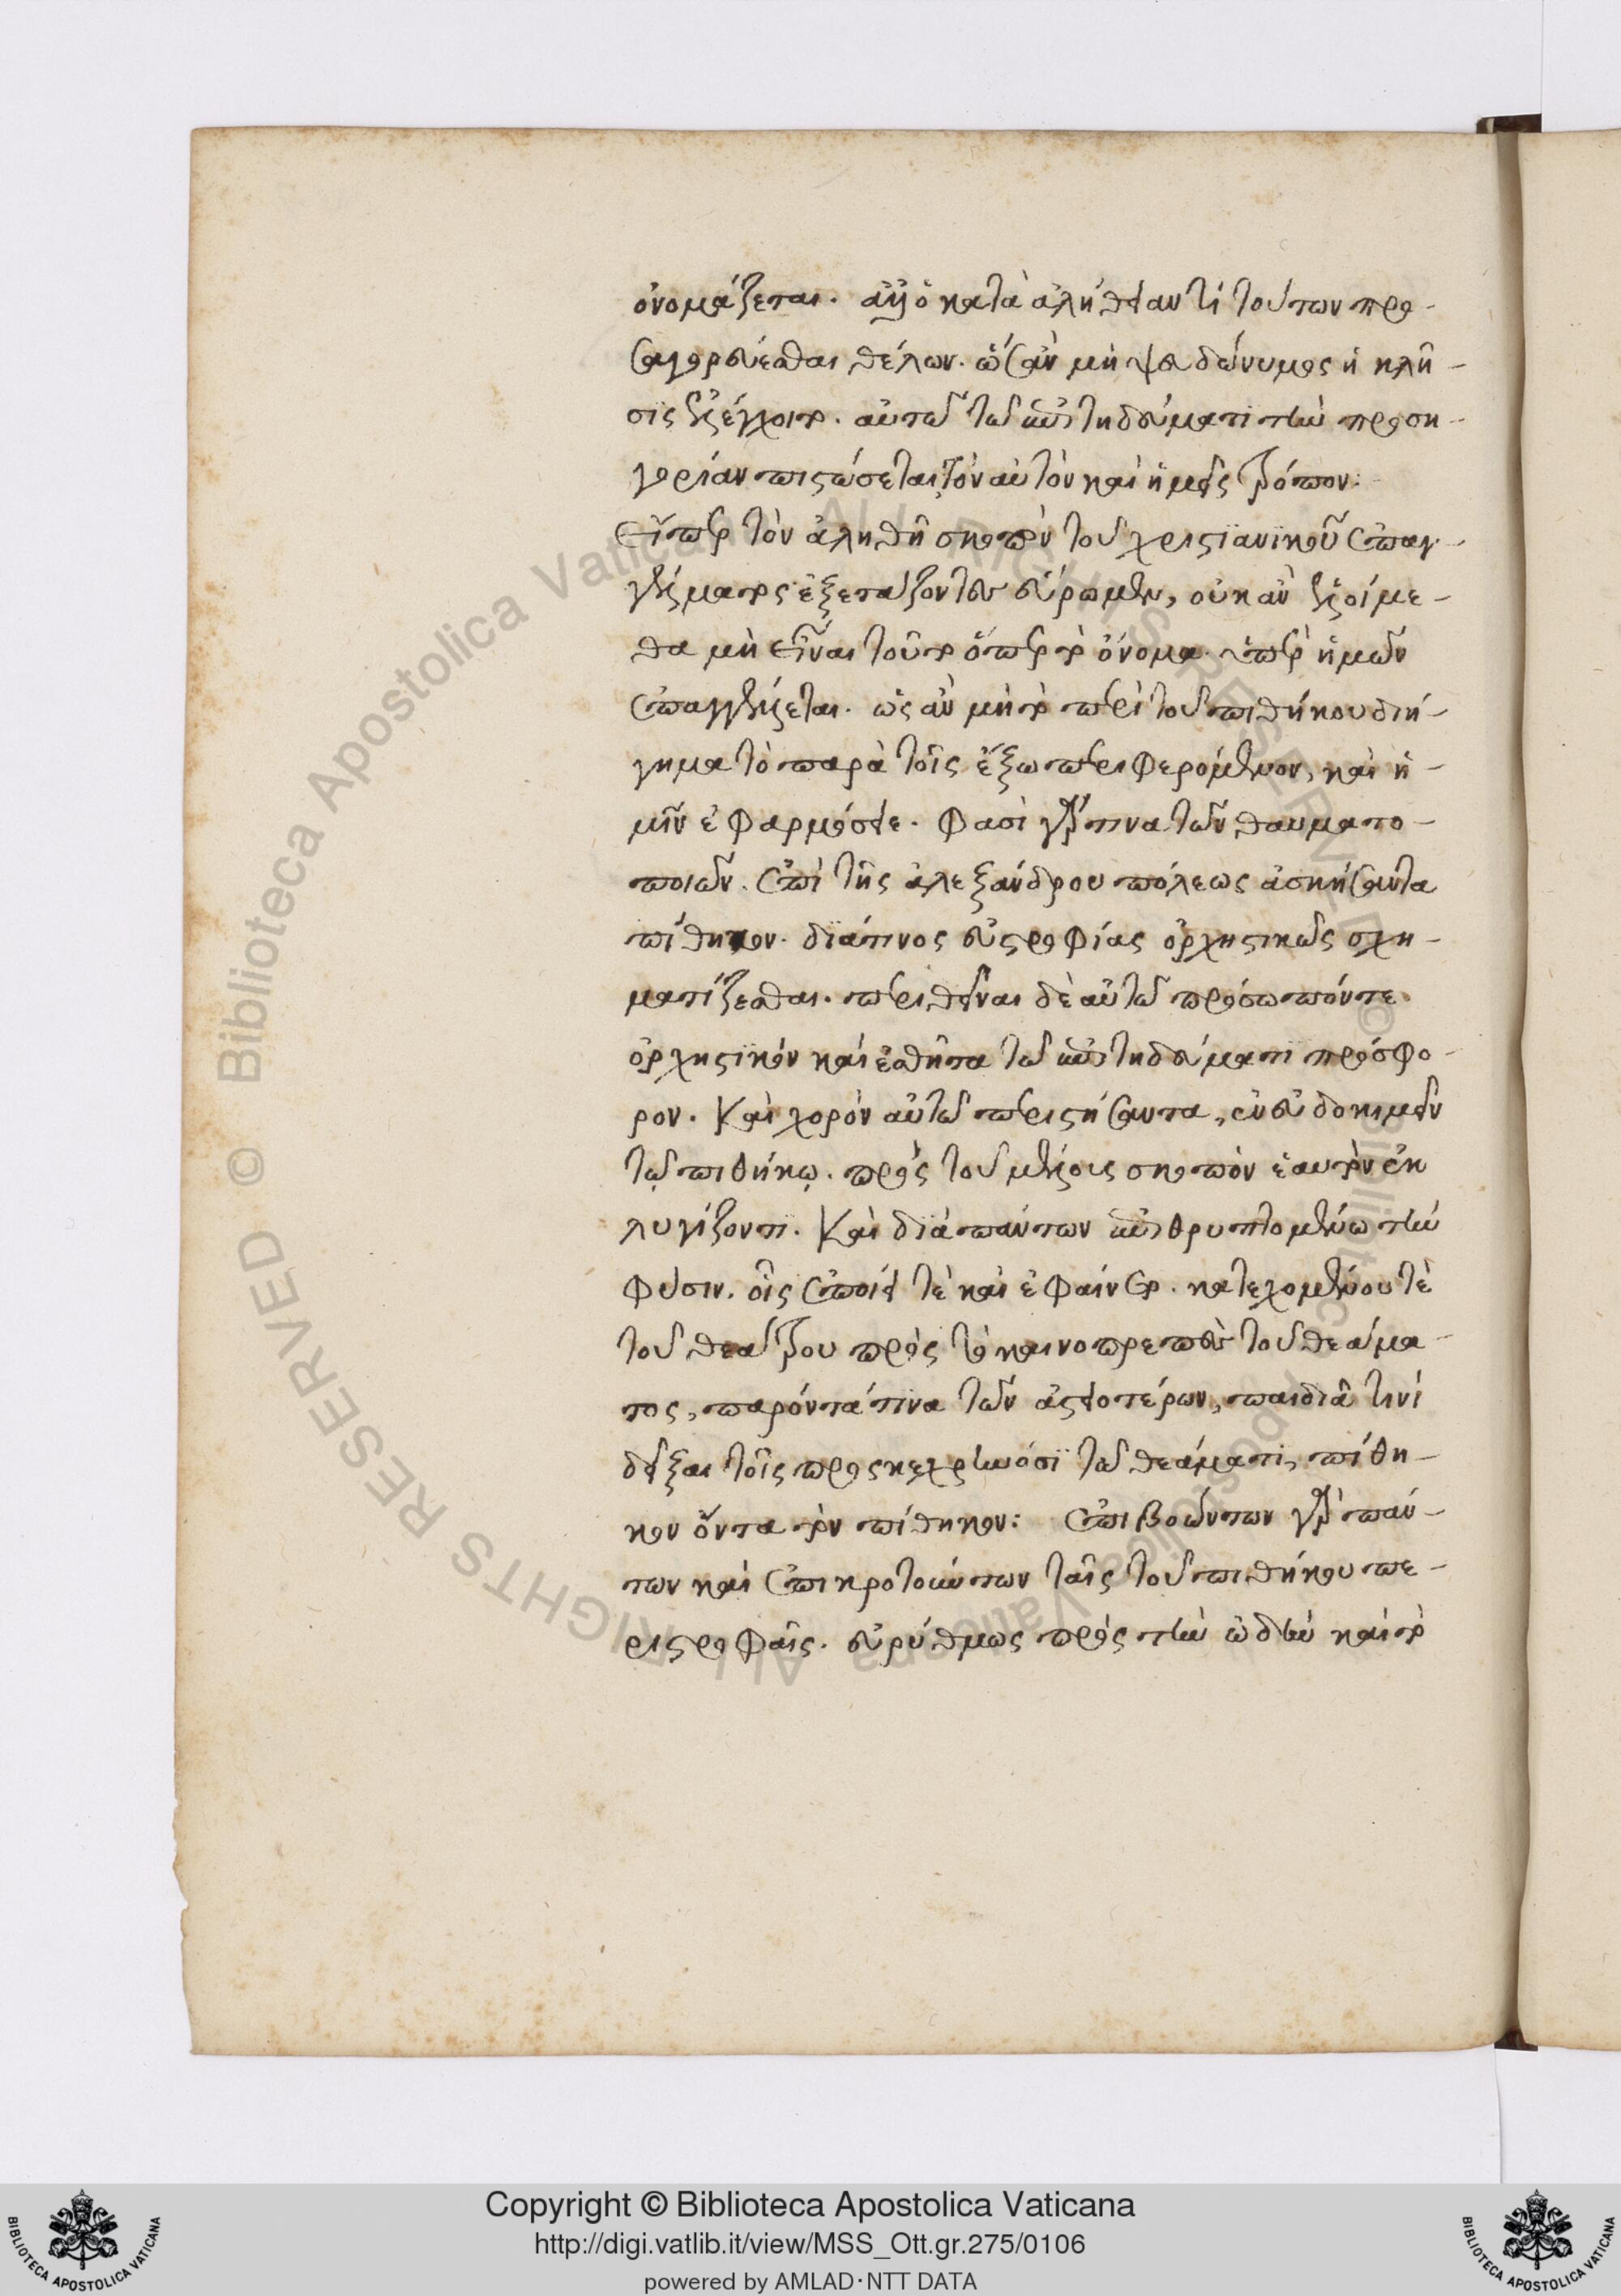 ὀνομάζεται. ἀλλ' ὁ κατὰ ἀλήθειαν τὶ τούτων προ-
σαγορεύεσθαι θέλων. ὡς ἂν μὴ ψευδώνυμος ἡ κλῆ-
σϊς ἐλέγχοιτο. αὐτῶ τῶ ἐπιτηδεύματι τὴν προση-
γορίαν πιστώσεται, τὸν αὐτὸν καὶ ἡμεῖς τρόπον.
Εἴπερ τὸν ἀληθῆ σκοπὸν τοῦ χριστϊανϊκοῦ ἐπαγ-
γέλματος ἐξετάζοντες εὕρωμεν, οὐκ ἂν ἑλοίμε-
θα μὴ εἶναι τοῦτο ὅπερ τὸ ὄνομα ὑπὲρ ἡμῶν
ἐπαγγέλλεται. ὡς ἂν μὴ τὸ περὶ τοῦ πιθήκου διή-
γημα τὸ παρὰ τοῖς ἔξω περιφερόμενον, καὶ ἡ-
μῖν ἐφαρμόσειε. φασὶ γάρ τινα τῶν θαυματο-
ποιῶν. ἐπὶ τῆς ἀλεξάνδρου πόλεως ἀσκήσαντα
πίθηκον. διάτινος εὐστροφίας ὀρχηστικῶς σχη-
ματίζεσθαι. περιθεῖναι δὲ αὐτῶ πρόσωπόντε
ὀρχηστϊκόν καὶ ἐσθῆτα τῶ ἐπιτηδεύματι πρόσφο-
ρον. καὶ χορὸν αὐτῶ περιστήσαντα, ἐνευδοκιμεῖν
τῷ πιθήκῳ. πρὸς τοῦ μέλους σκοπὸν ἑαυτὸν ἐκ
λυγίζοντι. καὶ διὰ πάντων ἐπιθρυπτομένω τὴν
φύσιν. οἷς ἐποίει τὲ καὶ ἐφαίνετο. κατεχομένου τὲ
τοῦ θεάτρου πρὸς τὸ καινοπρεπὲς τοῦ θεάμα-
τος, παρόντα τινα τῶν ἀστειοτέρων, παιδιᾶ τινί
δεῖξαι τοῖς προσκεχηνόσϊ τῶ θεάματι, πίθη-
κον ὄντα τὸν πίθηκον: ἐπιβοώντων γὰρ πάν-
των καὶ ἐπικροτούντων ταῖς τοῦ πιθήκου πε-
ριστροφαῖς. εὐρύθμως πρὸς τὴν ὠδὴν καὶ τὸ
Copyright © Biblioteca Apostolica Vaticana
http://digi.vatlib.it/view/MSS_Ott.gr.275/0106
powered by AMLAD·NTT DATA